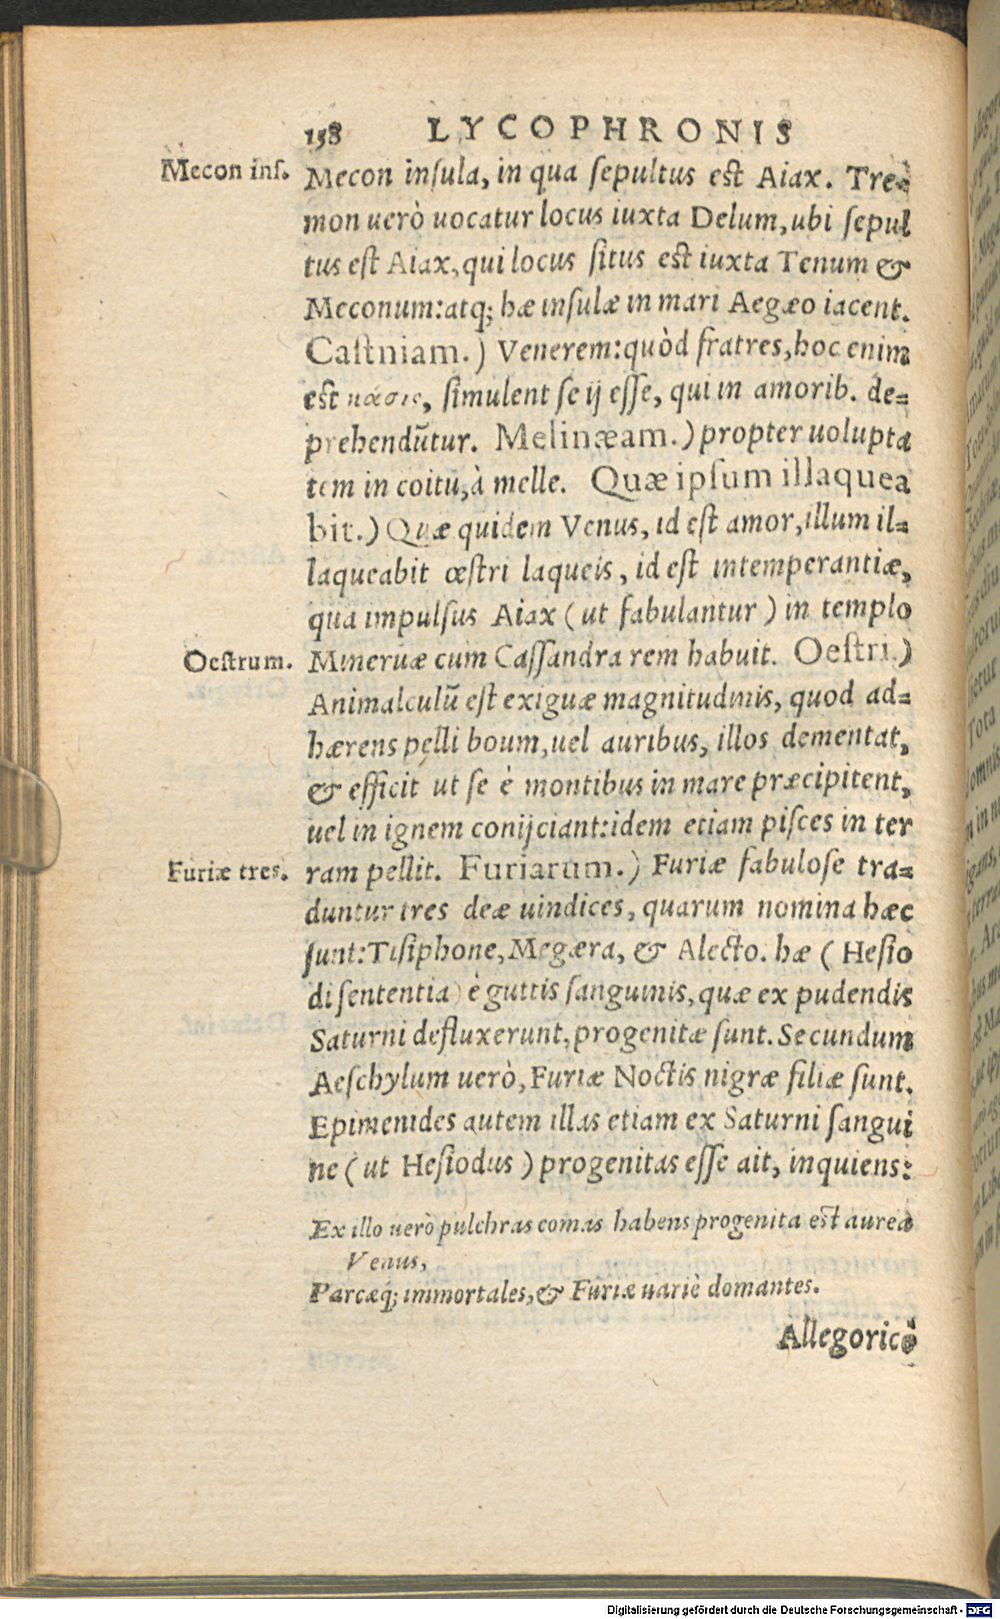 158 LYCOPHRONIS
Mecon ins. Mecon insula, in qua sepultus est Aiax. Tre=
mon uerò uocatur locus iuxta Delum, ubi sepul
tus est Aiax, qui locus situs est iuxta Tenum &
Meconum: atq; hæ insulæ in mari Aegæo iacent.
Castniam.) Venerem: quòd fratres, hoc enim
est κάσις, simulent se ij esse, qui in amorib. de=
prehendũtur. Melinæam.) propter uolupta
tem in coitu, à melle. Quæ ipsum illaquea
bit.) Quæ quidem Venus, id est amor, illum il=
laqueabit œstri laqueis, id est intemperantiæ,
qua impulsus Aiax (ut fabulantur) in templo
Oestrum. Mineruæ cum Cassandra rem habuit. Oestri.)
Animalculũ est exiguæ magnitudinis, quod ad=
hærens pelli boum, uel auribus, illos dementat,
& efficit ut se è montibus in mare præcipitent,
uel in ignem conijciant: idem etiam pisces in ter
Furiæ tres. ram pellit. Furiarum.) Furiæ fabulose tra=
duntur tres deæ uindices, quarum nomina hæc
sunt: Tisiphone, Megæra, & Alecto. hæ (Hesio
di sententia) è guttis sanguinis, quæ ex pudendis
Saturni defluxerunt, progenitæ sunt. Secundum
Aeschylum uerò, Furiæ Noctis nigræ filiæ sunt.
Epimenides autem illas etiam ex Saturni sangui
ne (ut Hesiodus) progenitas esse ait, inquiens:
Ex illo uerò pulchras comas habens progenita est aurea
Venus,
Parcæq; immortales, & Furiæ uariè domantes.
Allegoricè
Digitalisierung gefördert durch die Deutsche Forschungsgemeinschaft - DFG